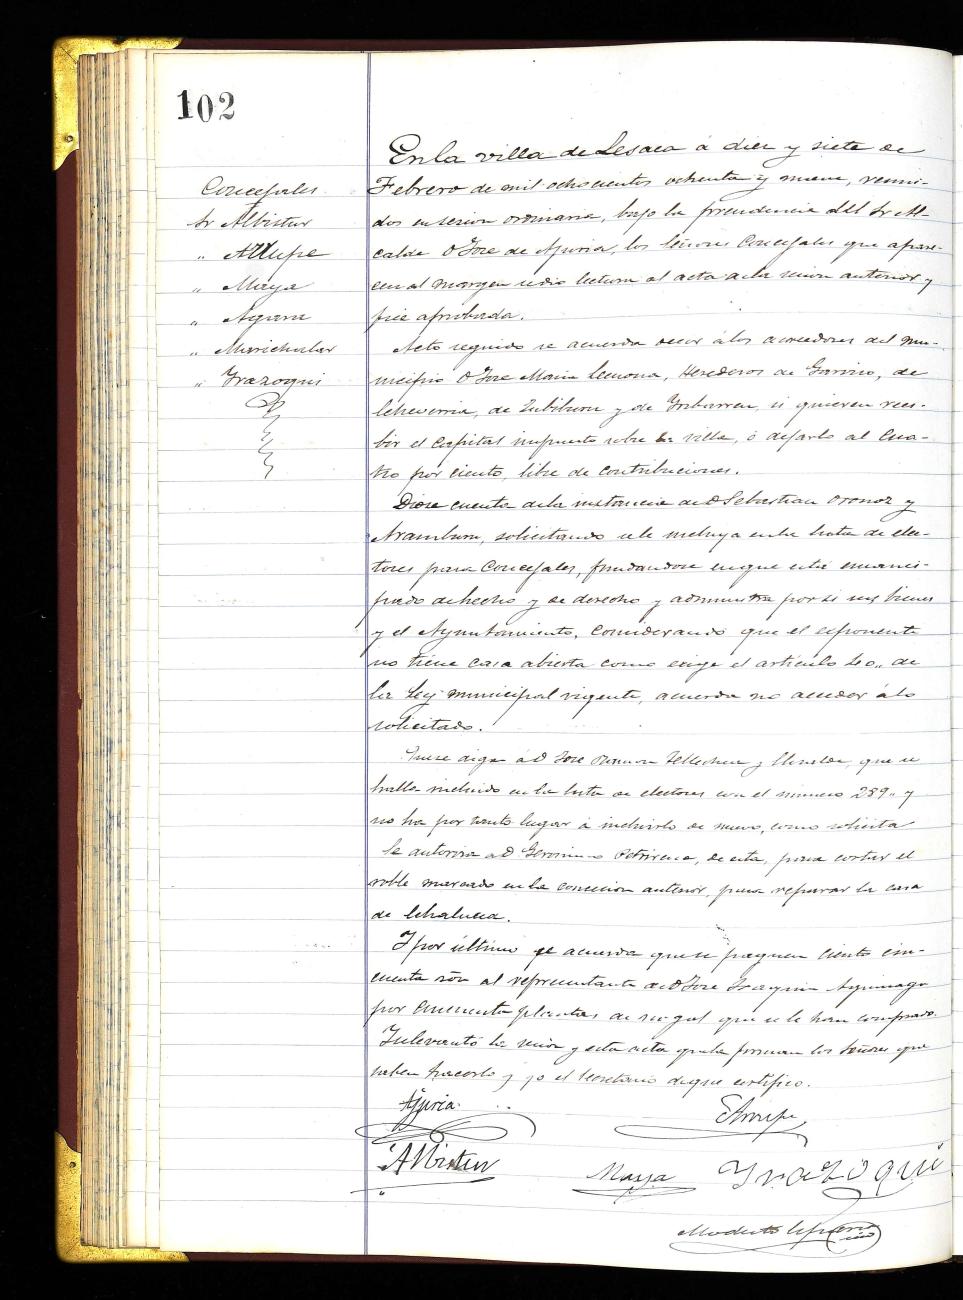 102
Concejales
Sr Albistur
" Altupe
" Maya
" Ayarra
" Marichalar
" Yrazoqui
En la villa de Lesaca á diez y siete de
Febrero de mil ochocientos ochenta y nueve, reuni-
dos en sesion ordinaria, bajo la presidencia del Sr Al-
calde D Jose de Ajuria, los señores Concejales que apare-
cen al margen se dio lectura al acta de la sesion anterior y
fue aprobada.
Acto seguido se acuerda decir á los acreedores del mu-
nicipio D Jose Maria Lecuona, Herederos de Garviso, de
Echeverria, de Zubiburu y de Yribarren, si quieren reci-
bir el capital impuesto sobre la villa, ó dejarlo al cua-
tro por ciento, libre de contribuciones.
Diose cuenta de la instancia de D Sebastian Oronoz y
Aramburu, solicitando se le incluya en la lista de elec-
tores para Concejales, fundandose en que está emanci-
pado de hecho y de derecho y administra por si sus bienes
y el Ayuntamiento, considerando que el esponente
no tiene casa abierta como exige el artículo 40,, de
la Ley municipal vigente, acuerda no acceder á lo
solicitado.
Que se diga á D Jose Ramon Tellechea y que se
halla incluido en la lista de electores con el número 289,, y
no ha por tanto lugar á incluirlo de nuevo, como solicita
Se autoriza a D Geronimo Petrirena, de esta, para cortar el
roble marcado en la concesion anterior, para reparar la casa
de Echalucea.
Y por último se acuerda que se paguen ciento cin-
cuenta rón al representante de D Jose Joaquin Aguinaga
por cincuenta plantas de nogal que se le han comprado.
Y se levantó la sesion y esta acta que la firman los Señores que
saben hacerlo y yo el Secretario de que certifico.
Ajuria
Altupe
Albistur
Maya Yrazoqui
Modesto